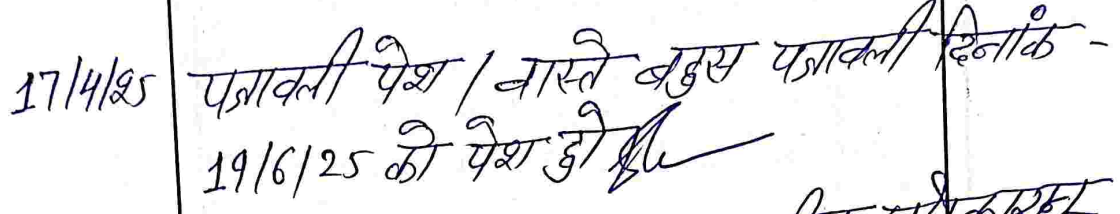 17/4/25 पत्रावली पेश / वास्ते बहस पत्रावली दिनांक -
19/6/25 को पेश हो